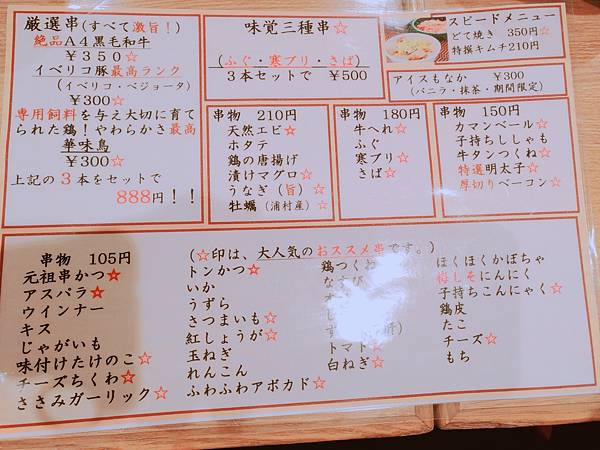 厳選串(すべて激旨!)
絶品A4黒毛和牛
¥350☆
イベリコ豚最高ランク
(イベリコ・ベジョータ)
¥300☆
専用飼料を与え大切に育て
られた鶏!やわらかさ最高
華味鳥
¥300☆
上記の3本をセットで
888円!!
味覚三種串☆
(ふぐ・寒ブリ・さば)
3本セットで ¥500
スピードメニュー
どて焼き 350円☆
特撰キムチ210円
アイスもなか ¥300
(バニラ・抹茶・期間限定)
串物 210円
天然エビ☆
ホタテ
鶏の唐揚げ
漬けマグロ☆
うなぎ(旨)☆
牡蠣(浦村産)☆
串物 180円
牛ヘレ☆
ふぐ
寒ブリ☆
さば☆
串物 150円
カマンベール☆
子持ちししゃも
牛タンつくね☆
特選明太子☆
厚切りベーコン☆
串物 105円
元祖串かつ☆
アスパラ☆
ウインナー
キス
じゃがいも
味付けたけのこ☆
チーズちくわ☆
ささみガーリック☆
(☆印は、大人気のおススメ串です。)
トンかつ☆
いか
うずら
さつまいも☆
紅しょうが☆
玉ねぎ
れんこん
ふわふわアボカド☆
鶏つくね
トマト☆
白ねぎ☆
ほくほくかぼちゃ
梅しそにんにく
子持ちこんにゃく☆
鶏皮
たこ
チーズ☆
もち